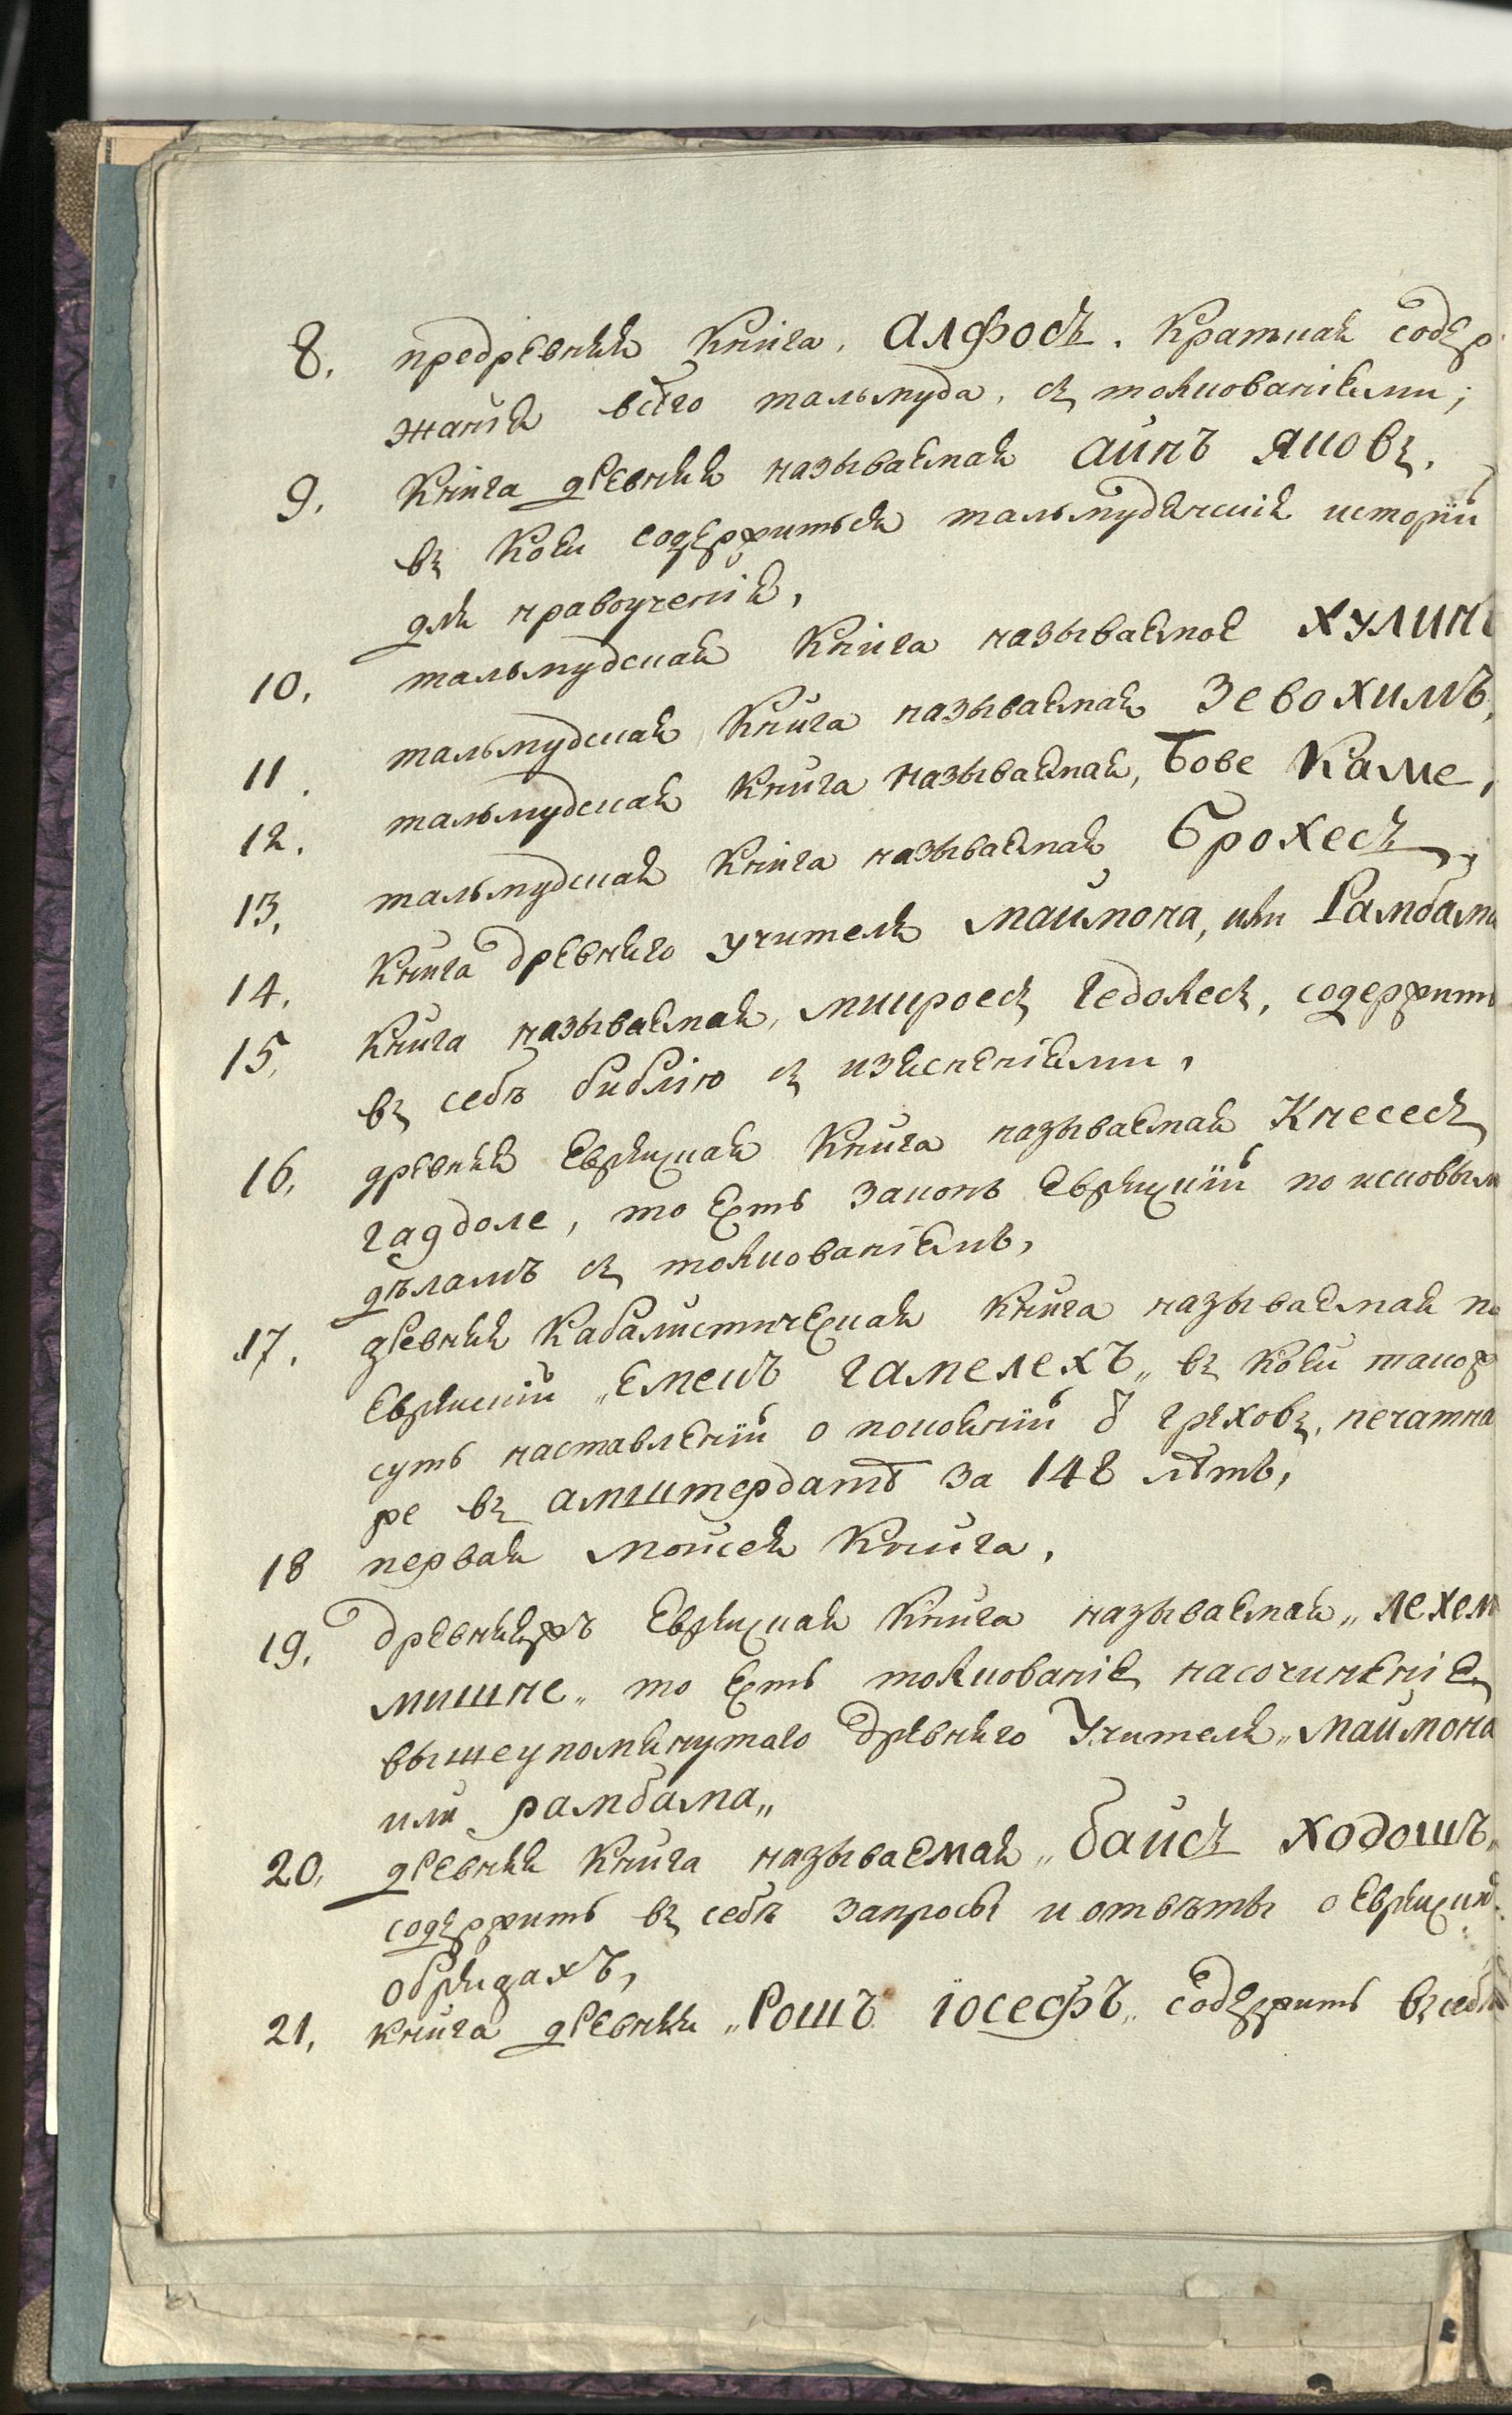 8. предревняя Книга. Алфосъ. Краткая содер
жанія всего тальмуда, съ толкованіями;
9. Книга древняя называемая Аинъ Яковъ,
въ коей содержиться тальмудическія исторіи
для нравоученія,
10. тальмудская Книга называемое Хулинъ
11. тальмудская Книга называемая Зевохимъ,
12. тальмудская Книга называемая, Бове Каме,
13. тальмудская Книга называемая Брохесъ,
14. Книга древняго учителя маймона, или Рамбама
15. Книга называемая, микроесъ гедолесъ, содержитъ
въ себѣ библію съ изъясненіями,
16. древняя Еврейская Книга называемая Кнесесъ
гадоле, то есть законъ Еврейскій по исковым
дѣламъ съ толкованіемъ,
17. древняя Кабалистическая Книга называемая по
Еврейскій „Емекъ гамелехъ„ въ коей такор
суть наставленій о покояній о грѣховъ, печатна
ре въ амштердатѣ за 148 лѣтъ,
18 первая моисея Книга,
19. древняяжъ Еврейская Книга называемая „лехем
мишне„ то есть толкованіе на сочиненіе
вышеупомянутаго древняго Учителя „маймона
или рамбама„
20. древняя Книга называемая „байсъ ходошъ„
содержитъ въ себѣ запросы и отвѣты о Еврейски
обрядахъ,
21. Книга древняя „Рошъ іосефъ„ содержитъ въ себѣ